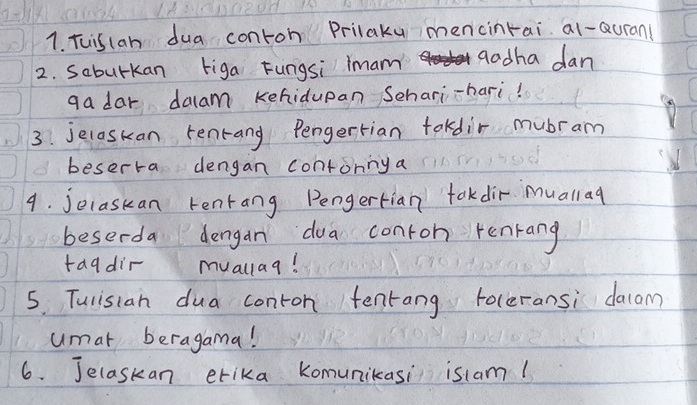 1. Tuislah dua contoh Prilaku mencintai al-Quran!
2. Saburkan tiga Fungsi Imam qadha dan
qadar dalam kehidupan Sehari-hari!
3. jelaskan tentang Pengertian takdir mubram
beserta dengan contohnya
4. jelaskan tentang Pengertian takdir muallaq
beserda dengan dua contoh tentang
taqdir muallaq!
5. Tulislah dua contoh tentang toleransi dalam
umat beragama!
6. Jelaskan etika Komunikasi islam!